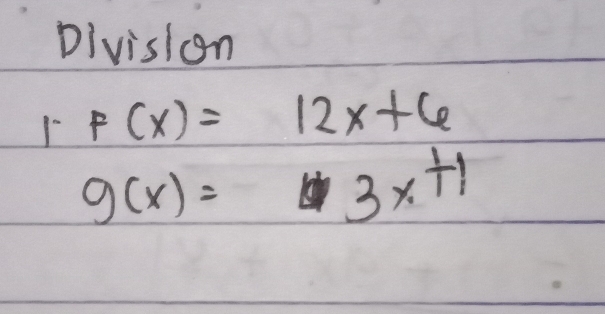 Division
1. F(x) = 12x+6
g(x) = 3x+1